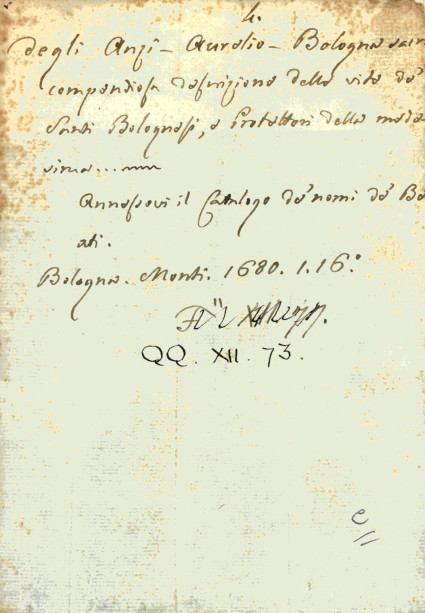 4.
degli Anzi - Aurelio - Bologna san
compendiosa descrizione della vita de'
Santi Bolognesi, e Protettori della mede
sima
Annessovi il Catalogo de' nomi de' Be
ati.
Bologna. Monti. 1680. 1.16.°
QQ. XII. 73.
e